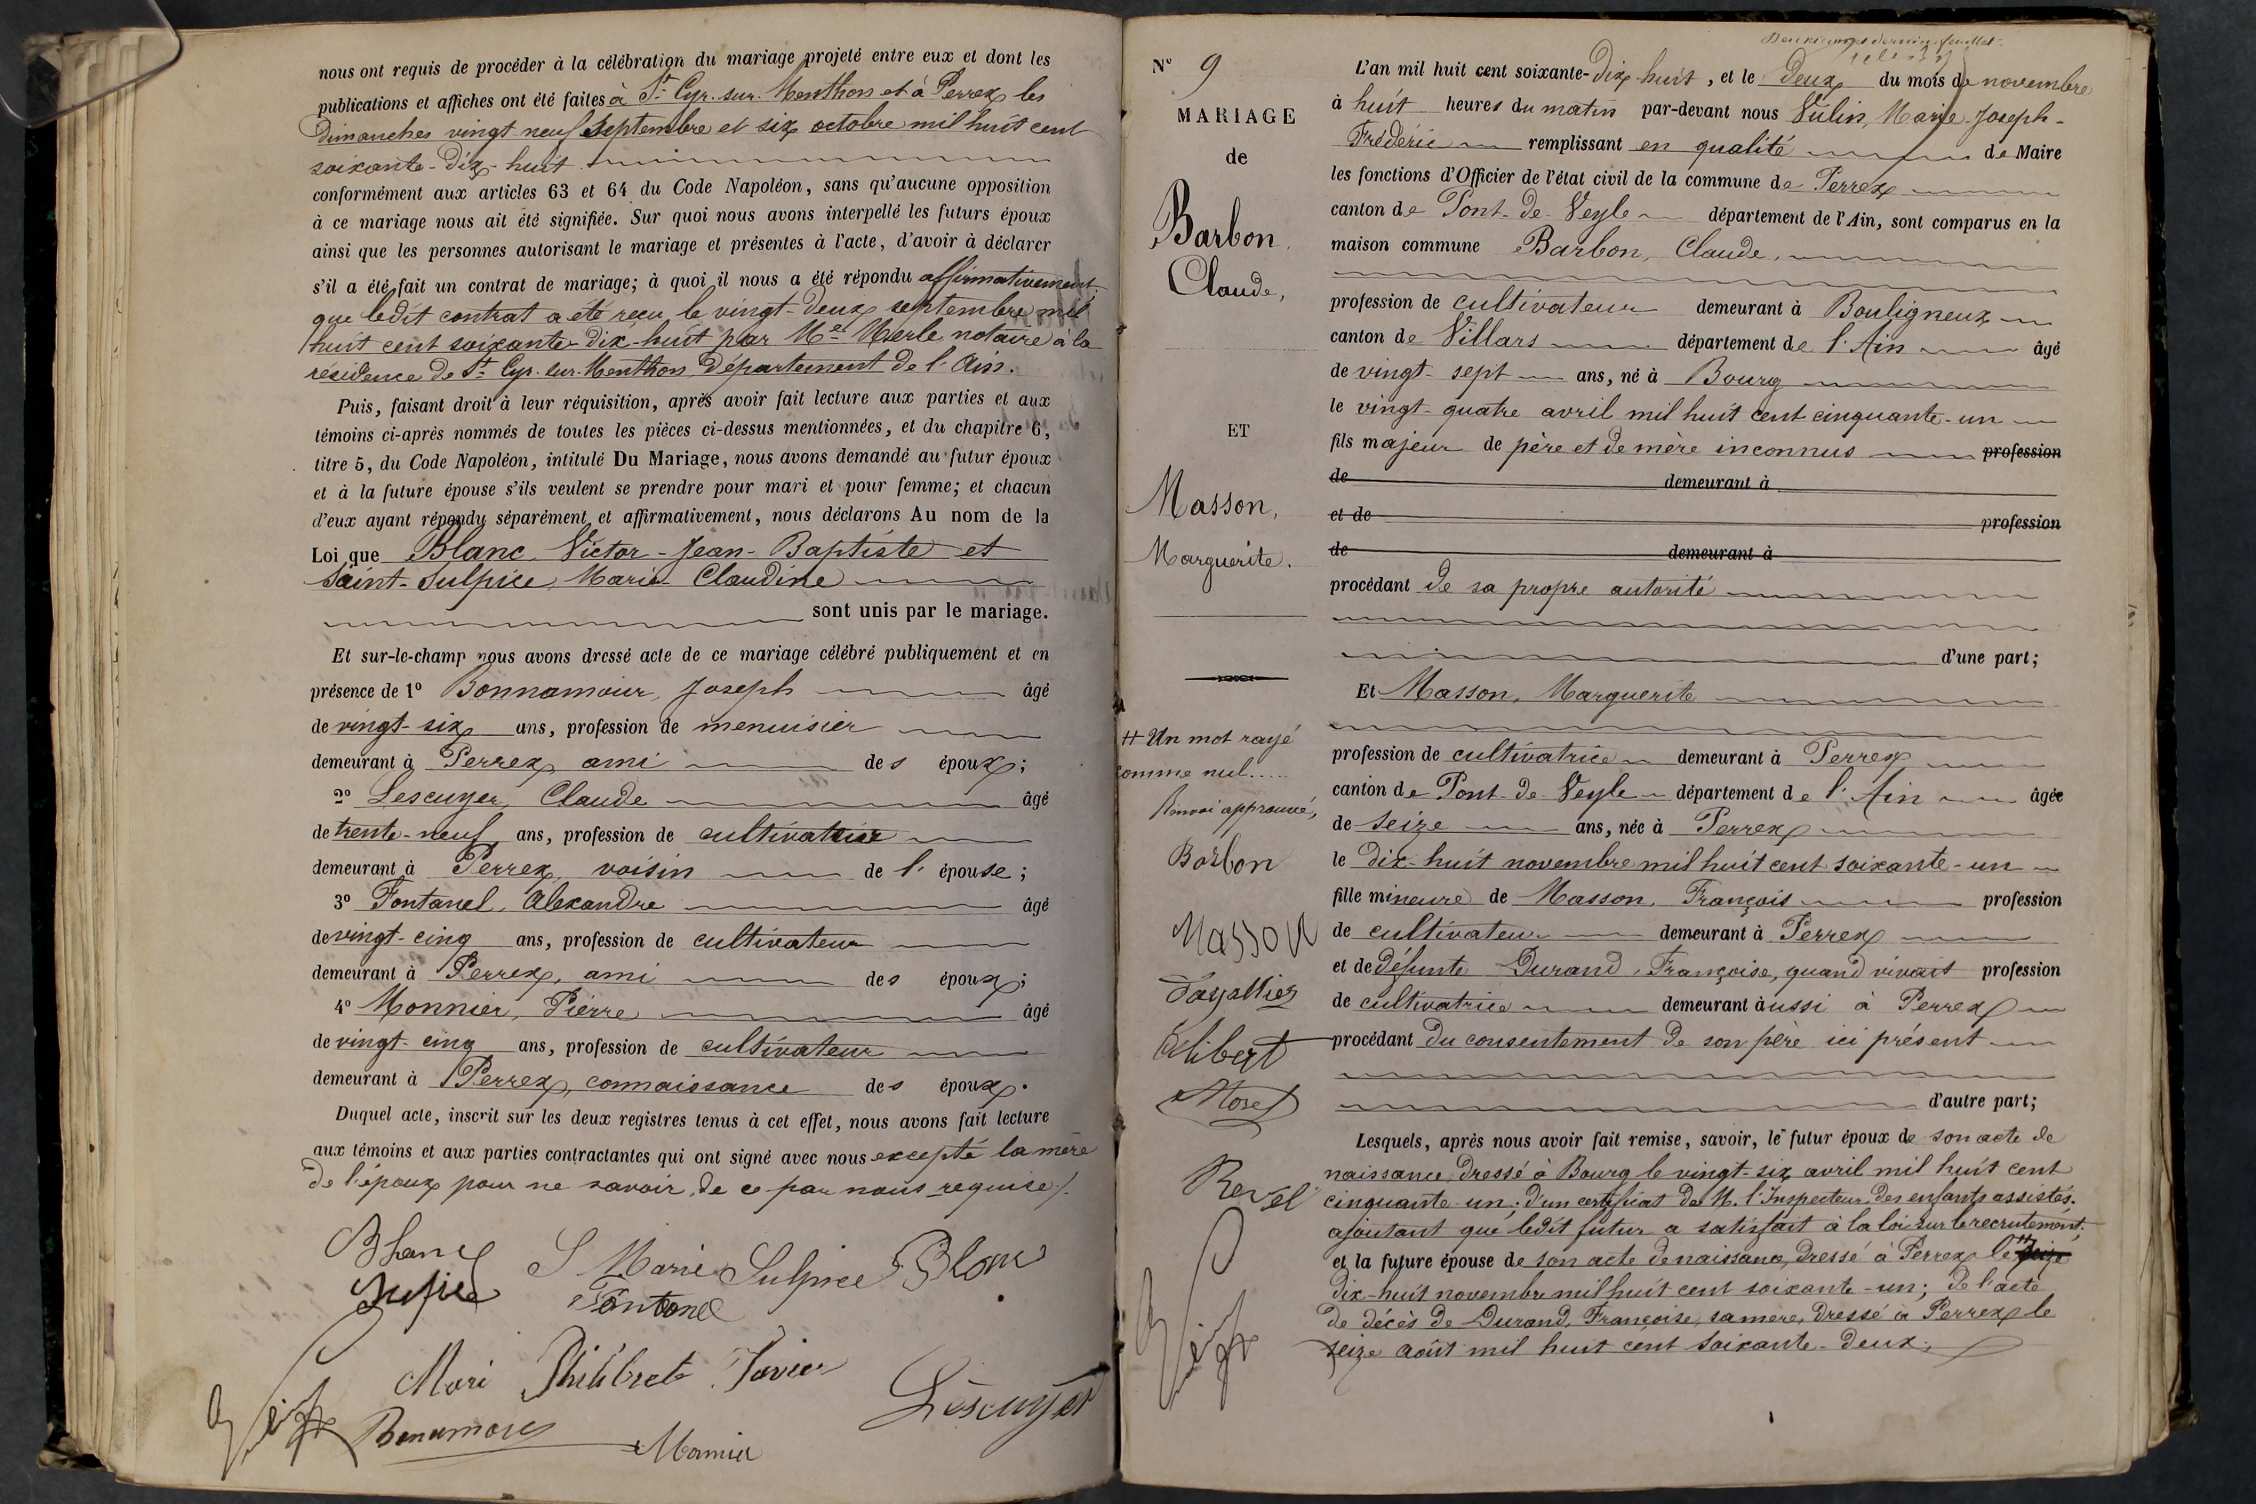 nous ont requis de procéder à la célébration du mariage projeté entre eux et dont les
publications et affiches ont été faites à St Cyr-sur-Menthon et à Perrex les
Dimanches vingt neuf septembre et six octobre mil huit cent
soixante-dix-huit
conformément aux articles 63 et 64 du Code Napoléon, sans qu'aucune opposition
à ce mariage nous ait été signifiée. Sur quoi nous avons interpellé les futurs époux
ainsi que les personnes autorisant le mariage et présentes à l'acte, d'avoir à déclarer
s'il a été fait un contrat de mariage; à quoi il nous a été répondu affirmativement
que ledit contrat a été reçu le vingt-deux septembre mil
huit cent soixante-dix-huit par Me Merle notaire à la
résidence de St Cyr-sur-Menthon Département de l'Ain.
Puis, faisant droit à leur réquisition, après avoir fait lecture aux parties et aux
témoins ci-après nommés de toutes les pièces ci-dessus mentionnées, et du chapitre 6,
titre 5, du Code Napoléon, intitulé Du Mariage, nous avons demandé au futur époux
et à la future épouse s'ils veulent se prendre pour mari et pour femme; et chacun
d'eux ayant répondu séparément et affirmativement, nous déclarons Au nom de la
Loi que Blanc Victor-Jean-Baptiste et
Saint-Sulpice Marie Claudine
sont unis par le mariage.
Et sur-le-champ nous avons dressé acte de ce mariage célébré publiquement et en
présence de 1º Bonnamour, Joseph âgé
de vingt-six ans, profession de menuisier
demeurant à Perrex, ami des époux;
2º Lescuyer, Claude âgé
de trente-neuf ans, profession de cultivateur
demeurant à Perrex, voisin de l'épouse;
3º Fontanel, Alexandre âgé
de vingt-cinq ans, profession de cultivateur
demeurant à Perrex, ami des époux;
4º Monnier, Pierre âgé
de vingt-cinq ans, profession de cultivateur
demeurant à Perrex, connaissance des époux.
Duquel acte, inscrit sur les deux registres tenus à cet effet, nous avons fait lecture
aux témoins et aux parties contractantes qui ont signé avec nous excepté la mère
de l'époux pour ne savoir, de ce par nous requise.
Blanc S Marie Sulpice Blanc
Fontanel
Philibert Lescuyer
Monnier
Nº 9
MARIAGE
de
Barbon,
Claude,
ET
Masson,
Marguerite.
Un mot rayé
comme nul.....
Renvoi approuvé,
Barbon
Masson
Alibert
Morel
Revel
L'an mil huit cent soixante-dix-huit, et le deux du mois de novembre
à huit heures du matin par-devant nous Vulin, Marie-Joseph-
Frédéric remplissant en qualité de Maire
les fonctions d'Officier de l'état civil de la commune de Perrex
canton de Pont-de-Veyle département de l'Ain, sont comparus en la
maison commune Barbon, Claude,
profession de cultivateur demeurant à Bouligneux
canton de Villars département de l'Ain âgé
de vingt-sept ans, né à Bourg
le vingt-quatre avril mil huit cent cinquante-un
fils majeur de père et de mère inconnus profession
de demeurant à
et de profession
de demeurant à
procédant de sa propre autorité
d'une part;
Et Masson, Marguerite
profession de cultivatrice demeurant à Perrex
canton de Pont-de-Veyle département de l'Ain âgée
de seize ans, née à Perrex
le dix-huit novembre mil huit cent soixante-un
fille mineure de Masson, François profession
de cultivateur demeurant à Perrex
et de défunte Durand, Françoise, quand vivait profession
de cultivatrice demeurant aussi à Perrex
procédant du consentement de son père ici présent
d'autre part;
Lesquels, après nous avoir fait remise, savoir, le futur époux de son acte de
naissance, dressé à Bourg le vingt-six avril mil huit cent
cinquante-un; d'un certificat de M. l'Inspecteur des enfants assistés
ajoutant que ledit futur a satisfait à la loi sur le recrutement;
et la future épouse de son acte de naissance, dressé à Perrex le seize
dix-huit novembre mil huit cent soixante-un; de l'acte
de décès de Durand, Françoise, sa mère, dressé à Perrex le
seize août mil huit cent soixante-deux;